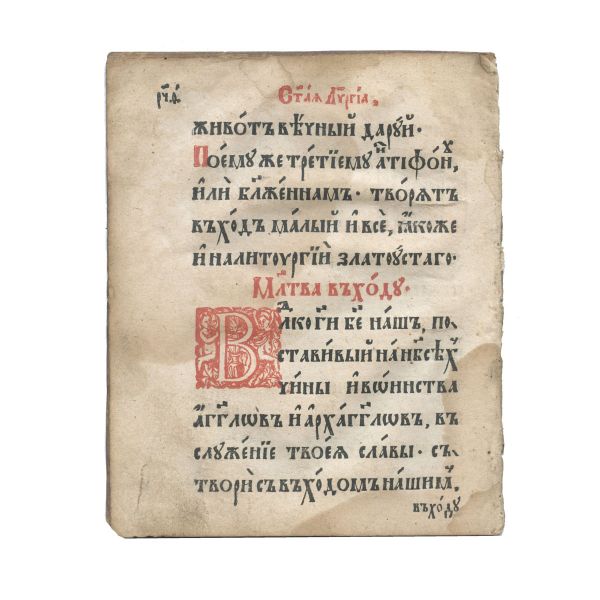 рч҃.а҃. Ст҃а́ѧ Лꙋ̑ргі́а.
живо́тъ вѣ́чный да́рꙋй·
Пое́мꙋ же тре́тїемꙋ а҆тїфѡ́нꙋх,
и҆лѝ бл҃же́ннамъ· творѧ́тъ
въхо́дъ ма́лый и҆ всѐ, ꙗ҆́коже
и҆ на литоургі́ѝ златоу́стаго·
Мл҃тва въхо́дꙋ·
Вл҃ко гд҃и бж҃е на́шъ, по
ста́вивый на нб҃сѣ́х
чи́ны и҆ во́инства
а҆́гг҃лѡвъ и҆ а҆рха́гг҃лѡвъ, въ
слꙋже́нїе твоеѧ̀ сла́вы· съ
творѝ съ въхо́домъ на́шим,
въхо́дꙋ